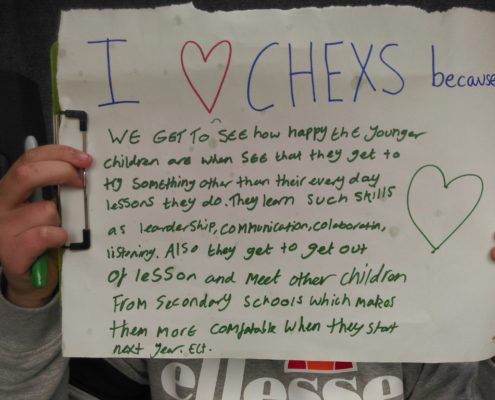 I ♡ CHEXS because
WE GET TO ^ SEE how happy the younger
children are when SEE that they get to
try something other than their every day
lessons they do. They learn such skills
as leardership, communication, colaboratn,
listoning. Also they get to get out
of lesson and meet other children
From Secondary Schools which makes
them more comfatable when they start
next year. Ect.
ellesse